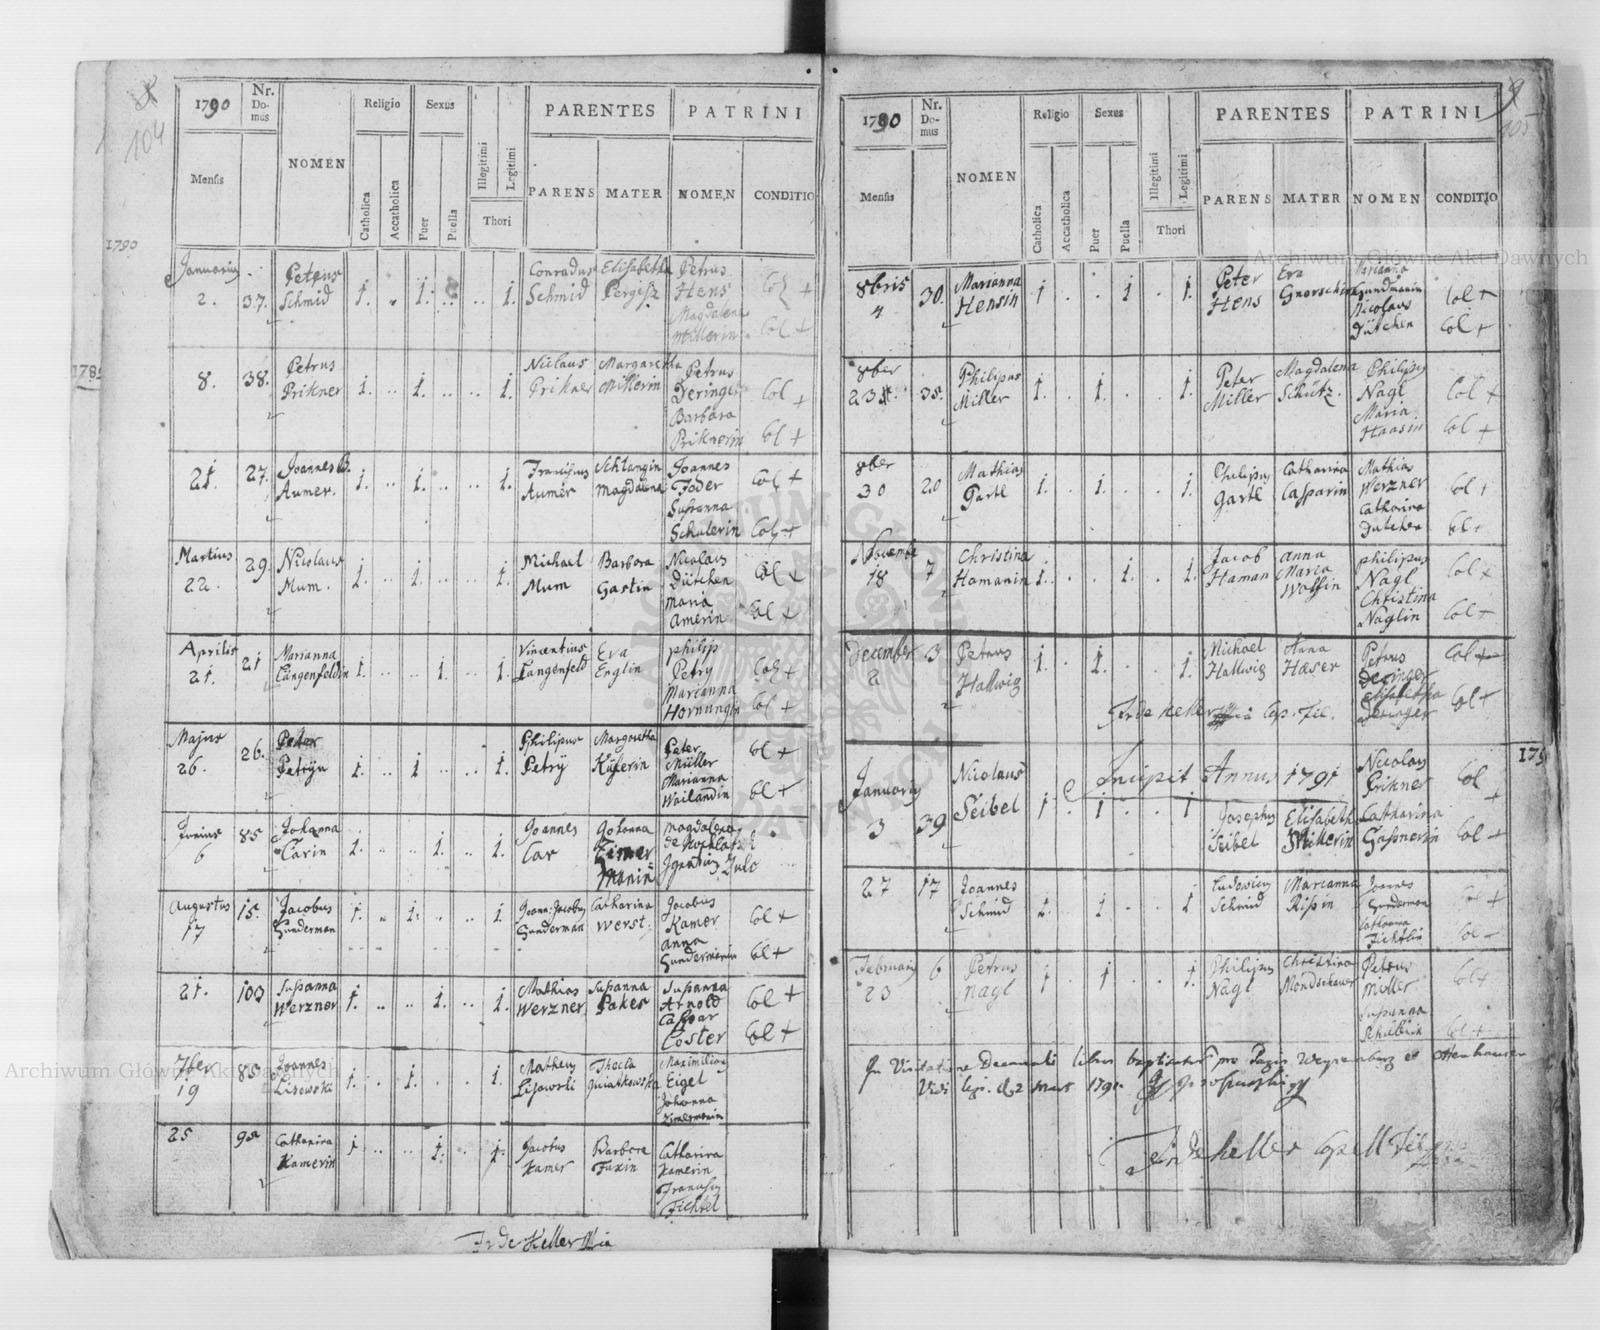 104
1790
Nr. Domus
NOMEN
Religio
Sexus
PARENTES
PATRINI
Mensis
Catholica
Accatholica
Puer
Puella
Illegitimi
Legitimi
Thori
PARENS
MATER
NOMEN
CONDITIO
1790
Januarius 2. 37. Petrus Schmid 1. 1. 1. Conradus Schmid Elisabetha Petrus Hens Col +
Magdalena Millerin Col +
8. 38. Petrus Prikner 1. 1. 1. Niclaus Prikner Margaretha Millerin Petrus Deringer Col +
Barbara Priknerin Col +
21. 27. Joannes B. Aumer. 1. 1. 1. Franciscus Aumer Schlangin Magdalena Joannes Foder Col +
Susanna Schulerin Col +
Martius 22. 29. Nicolaus Mum. 1. 1. 1. Michael Mum Barbara Gartin Nicolaus Dütchen Col +
Maria Amerin Col +
Aprilis 21. 21 Marianna Langenfeldin 1. 1. 1. Vincentius Langenfeld Eva Englin philip Petry Col +
Marianna Hornungin Col +
Majus 26. 26. Peter 1. 1 1. Philipus Petrÿ Margaretha Peter Müller Col +
Marianna Wailandin Col +
Junius 6 85 Johanna Carin 1. 1. 1. Joannes Car Johanna Zimermanin Magdalena de
Augustus 17 15. Jacobus Gunderman 1. 1. 1. Joann: Jacobus Gunderman Catharina Werst Jacobus Kamer Col +
anna Gundermanin Col +
21. 103 Susanna Werzner 1. 1. 1. Mathias Werzner Susanna Paker Susanna Arnold Col +
Caspar Coster Col +
7ber 19 85 Joannes Lisowski 1. 1. 1. Matheus Lisowski Thecla Quiatkowska Maximilian Eigel
Johanna Zimermanin
25 98 Catharina Kamerin 1. 1. 1. Jacobus Kamer Barbara Fuxin Catharina Kamerin
Franciscus Fichtel
Fr de Keller
9
105
1790
Nr. Domus
NOMEN
Religio
Sexus
PARENTES
PATRINI
Mensis
Catholica
Accatholica
Puer
Puella
Illegitimi
Legitimi
Thori
PARENS
MATER
NOMEN
CONDITIO
8bris 4 30. Marianna Hensin 1 1 1. Peter Hens Eva Marianna Gundmanin Col +
Nicolaus Dütchen Col +
8ber 38. Philipus Miller 1. 1. 1. Peter Miller Magdalena Schütz. Philipus Nagl Col +
Maria Haasin Col +
8ber 30 20 Mathias Gartl 1. 1. 1. Philipus Gartl Catharina Casparin Mathias Werzner Col +
Catharina Dutchen Col +
Novembe 18 7 Christina Hamanin 1. 1. 1. Jacob Haman anna Maria Wolfin philipus Nagl Col +
Christina Naglin Col +
December 2 3 Petrus Hallwig 1. 1. 1. Michael Hallwig Anna Hæser Petrus Deringer Col +
Elisabetha Deringer Col +
Fr de Keller
Incipit Annus 1791
Januarius 3 39 Nicolaus Seibel 1. 1. 1 Josephus Seibel Elisabeth Millerin Nicolaus Prikner Col +
Catharina Gassnerin Col +
27 17 Joannes Schmid 1. 1. 1 Ludovicus Schmid Marianna Risin Joannes Gunderman Col +
Catharina Fichtlin Col +
Februarius 23 6 Petrus Nagl 1 1 1. Philipus Nagl Christina Mondschauer Petrus Miller Col +
Susanna Schullerin Col +
In Visitatione Decanali liber baptisator pro Pagis et
Vidi legi. d. 2 Mart 1791.
Fr de Keller Capell
Archiwum Główne Akt Dawnych
Archiwum Główne Akt Dawnych
ARCHIWUM GŁÓWNE AKT DAWNYCH